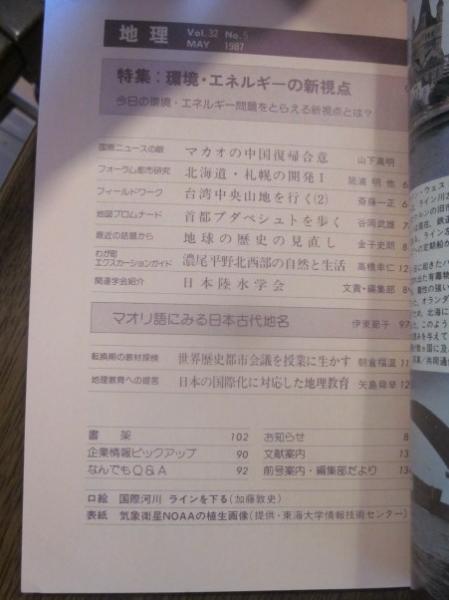 地理 Vol.32 No.5
MAY 1987
特集:環境・エネルギーの新視点
今日の環境・エネルギー問題をとらえる新視点とは?
国際ニュースの眼 マカオの中国復帰合意 山下高明
フォーラム都市研究 北海道・札幌の開発 I 明他 6
フィールドワーク 台湾中央山地を行く(2) 斎藤一正 6
地図プロムナード 首都ブダペシュトを歩く 谷岡武雄 7
最近の話題から 地球の歴史の見直し 金子史朗 8
わが町エクスカーションガイド 濃尾平野北西部の自然と生活 高橋幸仁 12
関連学会紹介 日本陸水学会 文責・編集部 8
マオリ語にみる日本古代地名 伊東節子 97
転換期の教材探検 世界歴史都市会議を授業に生かす 朝倉 11
地理教育への提言 日本の国際化に対応した地理教育 矢島舜孳 12
書架 102 お知らせ 8
企業情報ピックアップ 90 文献案内 13
なんでもQ&A 92 前号案内・編集部だより 13
口絵 国際河川 ラインを下る(加藤敦史)
表紙 気象衛星NOAAの植生画像(提供・東海大学情報技術センター)